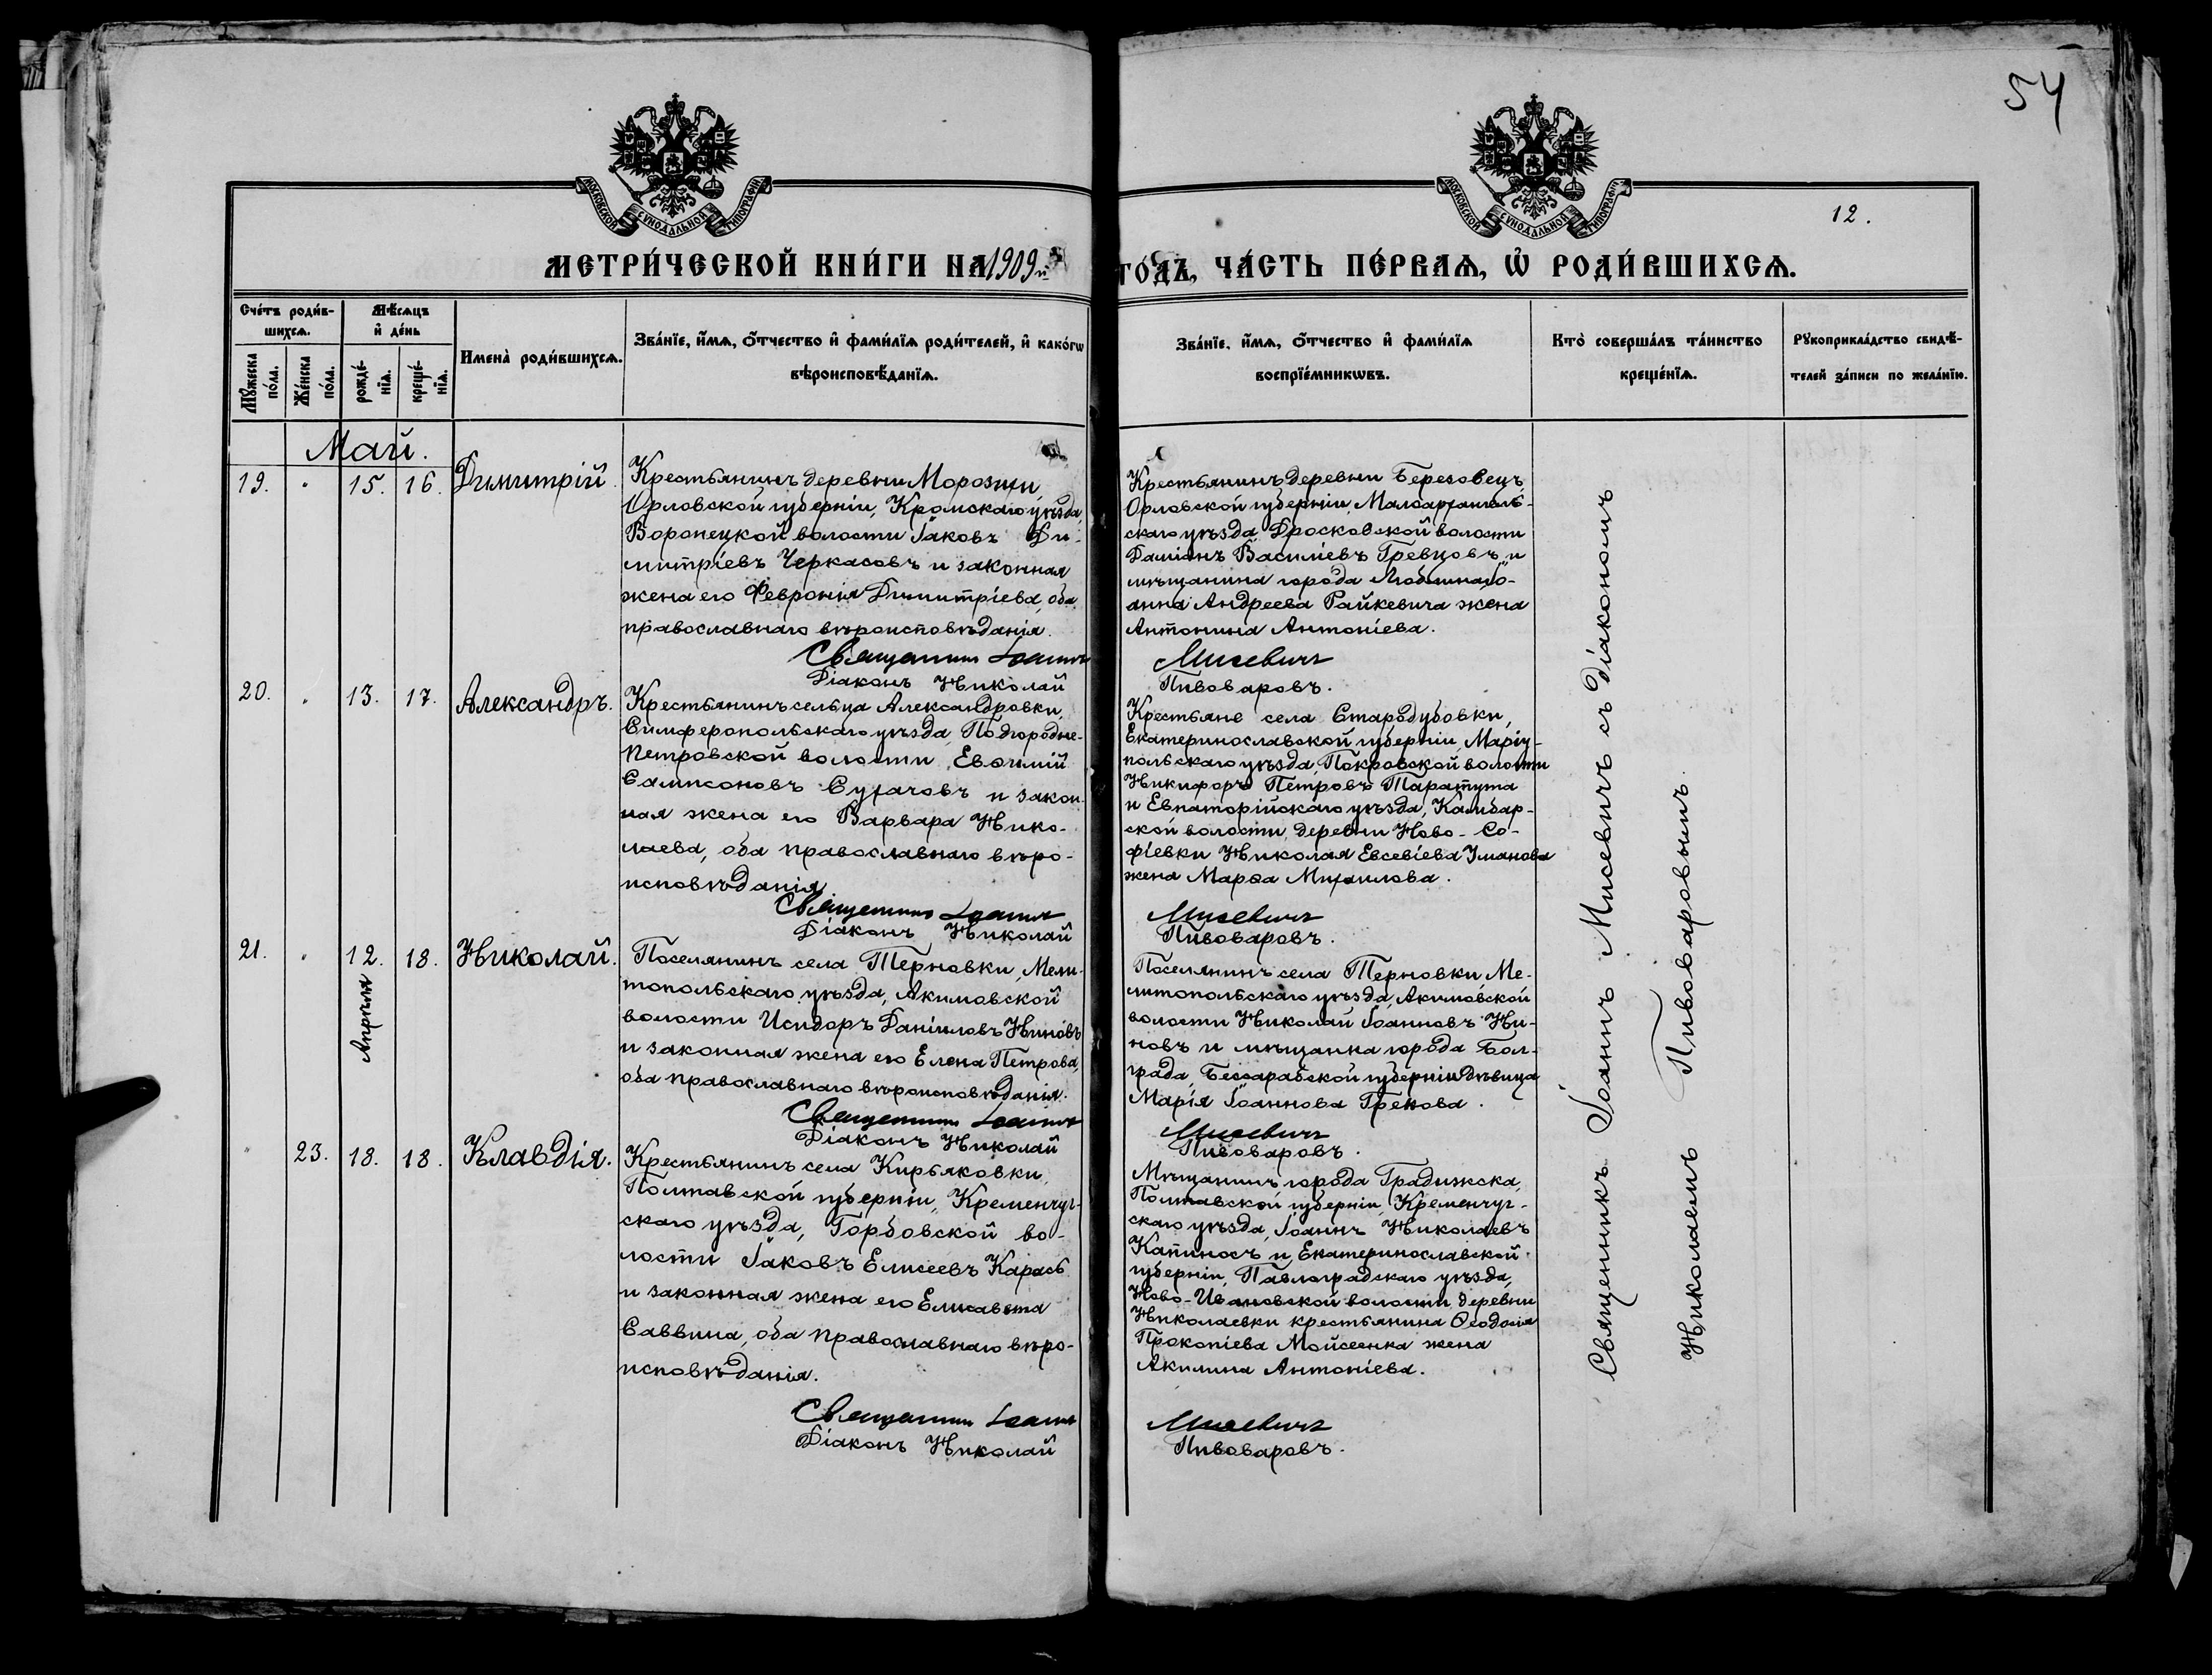 54
МОСКОВСКОЙ СѴНОДАЛЬНОЙ ТИПОГРАФІИ
МОСКОВСКОЙ СѴНОДАЛЬНОЙ ТИПОГРАФІИ
12.
МЕТРИ́ЧЕСКОЙ КНИ́ГИ НА 1909й
ГО́ДЪ, ЧА́СТЬ ПЕ́РВАѦ, Ѽ РОДИ́ВШИХСѦ.
Сче́тъ роди́в-
шихсѧ.
Мꙋ́жеска
по́ла.
Же́нска
по́ла.
Мѣ́сѧцъ
и҆ де́нь
рожде́-
нїѧ.
креще́-
нїѧ.
Имена̀ роди́вшихсѧ.
Зва́нїе, и҆́мѧ, ѻ҆́тчество и҆ фами́лїѧ роди́телей, и҆ како́гѡ
вѣроисповѣ́данїѧ.
Зва́нїе, и҆́мѧ, ѻ҆́тчество и҆ фами́лїѧ
воспрїе́мникѡвъ.
Кто̀ соверша́лъ та́инство
креще́нїѧ.
Рꙋкоприкла́дство свидѣ́-
телей за́писи по жела́нїю.
Май.
19. " 15. 16. Димитрій
Крестьянинъ деревни Морозихи,
Орловской губерніи, Кромскаго уѣзда,
Воронецкой волости Іаковъ Ди-
митріевъ Черкасовъ и законная
жена его Феврониія Димитріева, оба
православнаго вѣроисповѣданія.
Священникъ Іоаннъ
Діаконъ Николай
Крестьянинъ деревни Березовецъ,
Орловской губерніи, Малоархангель-
скаго уѣзда, Дросковской волости
Даміанъ Василіевъ Гревцовъ и
мѣщанина города
анна Андреева Райкевича жена
Антонина Антоніева.
Мисевичъ
Пивоваровъ.
20. " 13. 17. Александръ.
Крестьянинъ сельца Александровки,
Симферопольскаго уѣзда, Подгородне-
Петровской волости, Евѳимій
Сампсоновъ Сухачовъ и закон-
ная жена его Варвара Нико-
лаева, оба православнаго вѣро-
исповѣданія.
Священникъ Іоаннъ
Діаконъ Николай
Крестьяне села Стародубовки,
Екатеринославской губерніи, Маріу-
польскаго уѣзда, Покровской волости
Никифоръ Петровъ Таратута
и Евпаторійскаго уѣзда, Камбар-
ской волости, деревни Ново-Со-
фіевки Николая Евсевіева Уманова
жена Марѳа Михаилова.
Мисевичъ
Пивоваровъ.
21. " 12. 18. Николай.
Апрѣля
Поселянинъ села Терновки, Мели-
топольскаго уѣзда, Акимовской
волости Исидоръ Даніиловъ Ниновъ
и законная жена его Елена Петрова,
оба православнаго вѣроисповѣданія.
Священникъ Іоаннъ
Діаконъ Николай
Поселянинъ села Терновки Ме-
литопольскаго уѣзда, Акимовской
волости Николай Іоанновъ Ни-
новъ и мѣщанка города Бол-
града, Бессарабской губерніи дѣвица
Марія Іоаннова Грекова.
Мисевичъ
Пивоваровъ.
" 23. 18. 18. Клавдія.
Крестьянинъ села Кирьяковки,
Полтавской губерніи, Кременчуг-
скаго уѣзда, Горбовской во-
лости Іаковъ Елисеевъ Карась
и законная жена его Елисавета
Саввина, оба православнаго вѣро-
исповѣданія.
Священникъ Іоаннъ
Діаконъ Николай
Мѣщанинъ города Градижска,
Полтавской губерніи, Кременчуг-
скаго уѣзда, Іоаннъ Николаевъ
Капиносъ и Екатеринославской
губерніи, Павлоградскаго уѣзда,
Ново-Ивановской волости, деревни
Николаевки крестьянина Ѳеодосія
Прокопіева Мойсеенка жена
Акилина Антоніева.
Мисевичъ
Пивоваровъ.
Священникъ Іоаннъ Мисевичъ съ діакономъ
Николаемъ Пивоваровымъ.